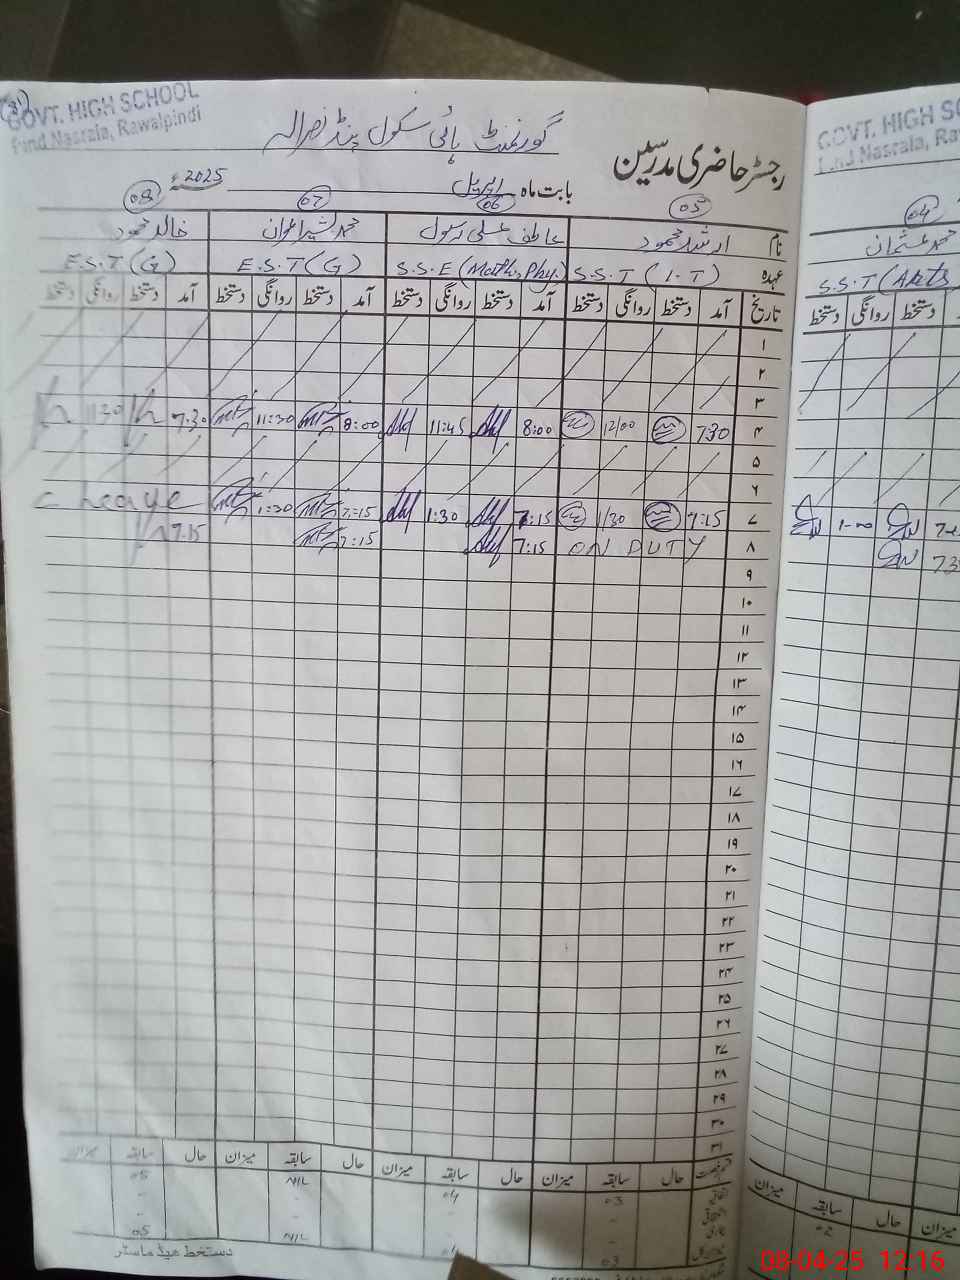 GOVT. HIGH SCHOOL
Pind Nasrala, Rawalpindi
گورنمنٹ ہائی سکول پنڈ نصرالہ
رجسٹر حاضری مدرسین
بابت ماہ اپریل 2025
05 06 07 08
نام ارشد محمود عاطف علی رسول محمد بشیر اعوان خالد محمود
عہدہ S.S.T (I.T) S.S.E (Math, Phy.) E.S.T (G) E.S.T (G)
تاریخ آمد دستخط روانگی دستخط آمد دستخط روانگی دستخط آمد دستخط روانگی دستخط آمد دستخط روانگی دستخط
۱
۲
۳
۴ 7:30 12/00 8:00 11:45 8:00 11:30 7.30 11:30
۵
۶
۷ 7:15 1/30 7:15 1:30 7:15 1:30 C Leave
۸ ON DUTY 7:15 7:15 7.15
۹
۱۰
۱۱
۱۲
۱۳
۱۴
۱۵
۱۶
۱۷
۱۸
۱۹
۲۰
۲۱
۲۲
۲۳
۲۴
۲۵
۲۶
۲۷
۲۸
۲۹
۳۰
۳۱
حال سابقہ میزان حال سابقہ میزان حال سابقہ میزان حال سابقہ میزان
03 04 NIL 05
03 NIL 05
دستخط ہیڈ ماسٹر
GOVT. HIGH S
Pind Nasrala, Ra
04
محمد عثمان
S.S.T (Arts
دستخط روانگی دستخط
1-00
میزان سابقہ حال میزان
02
08-04-25 12:16